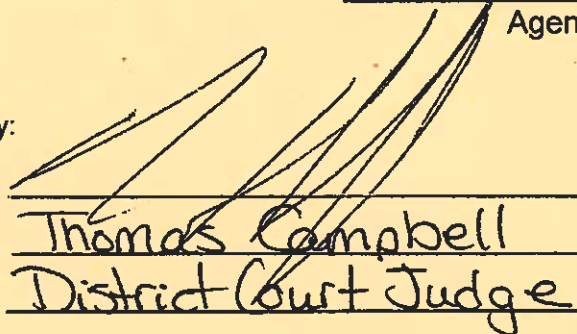 Agen
y:
Thomas Campbell
District Court Judge